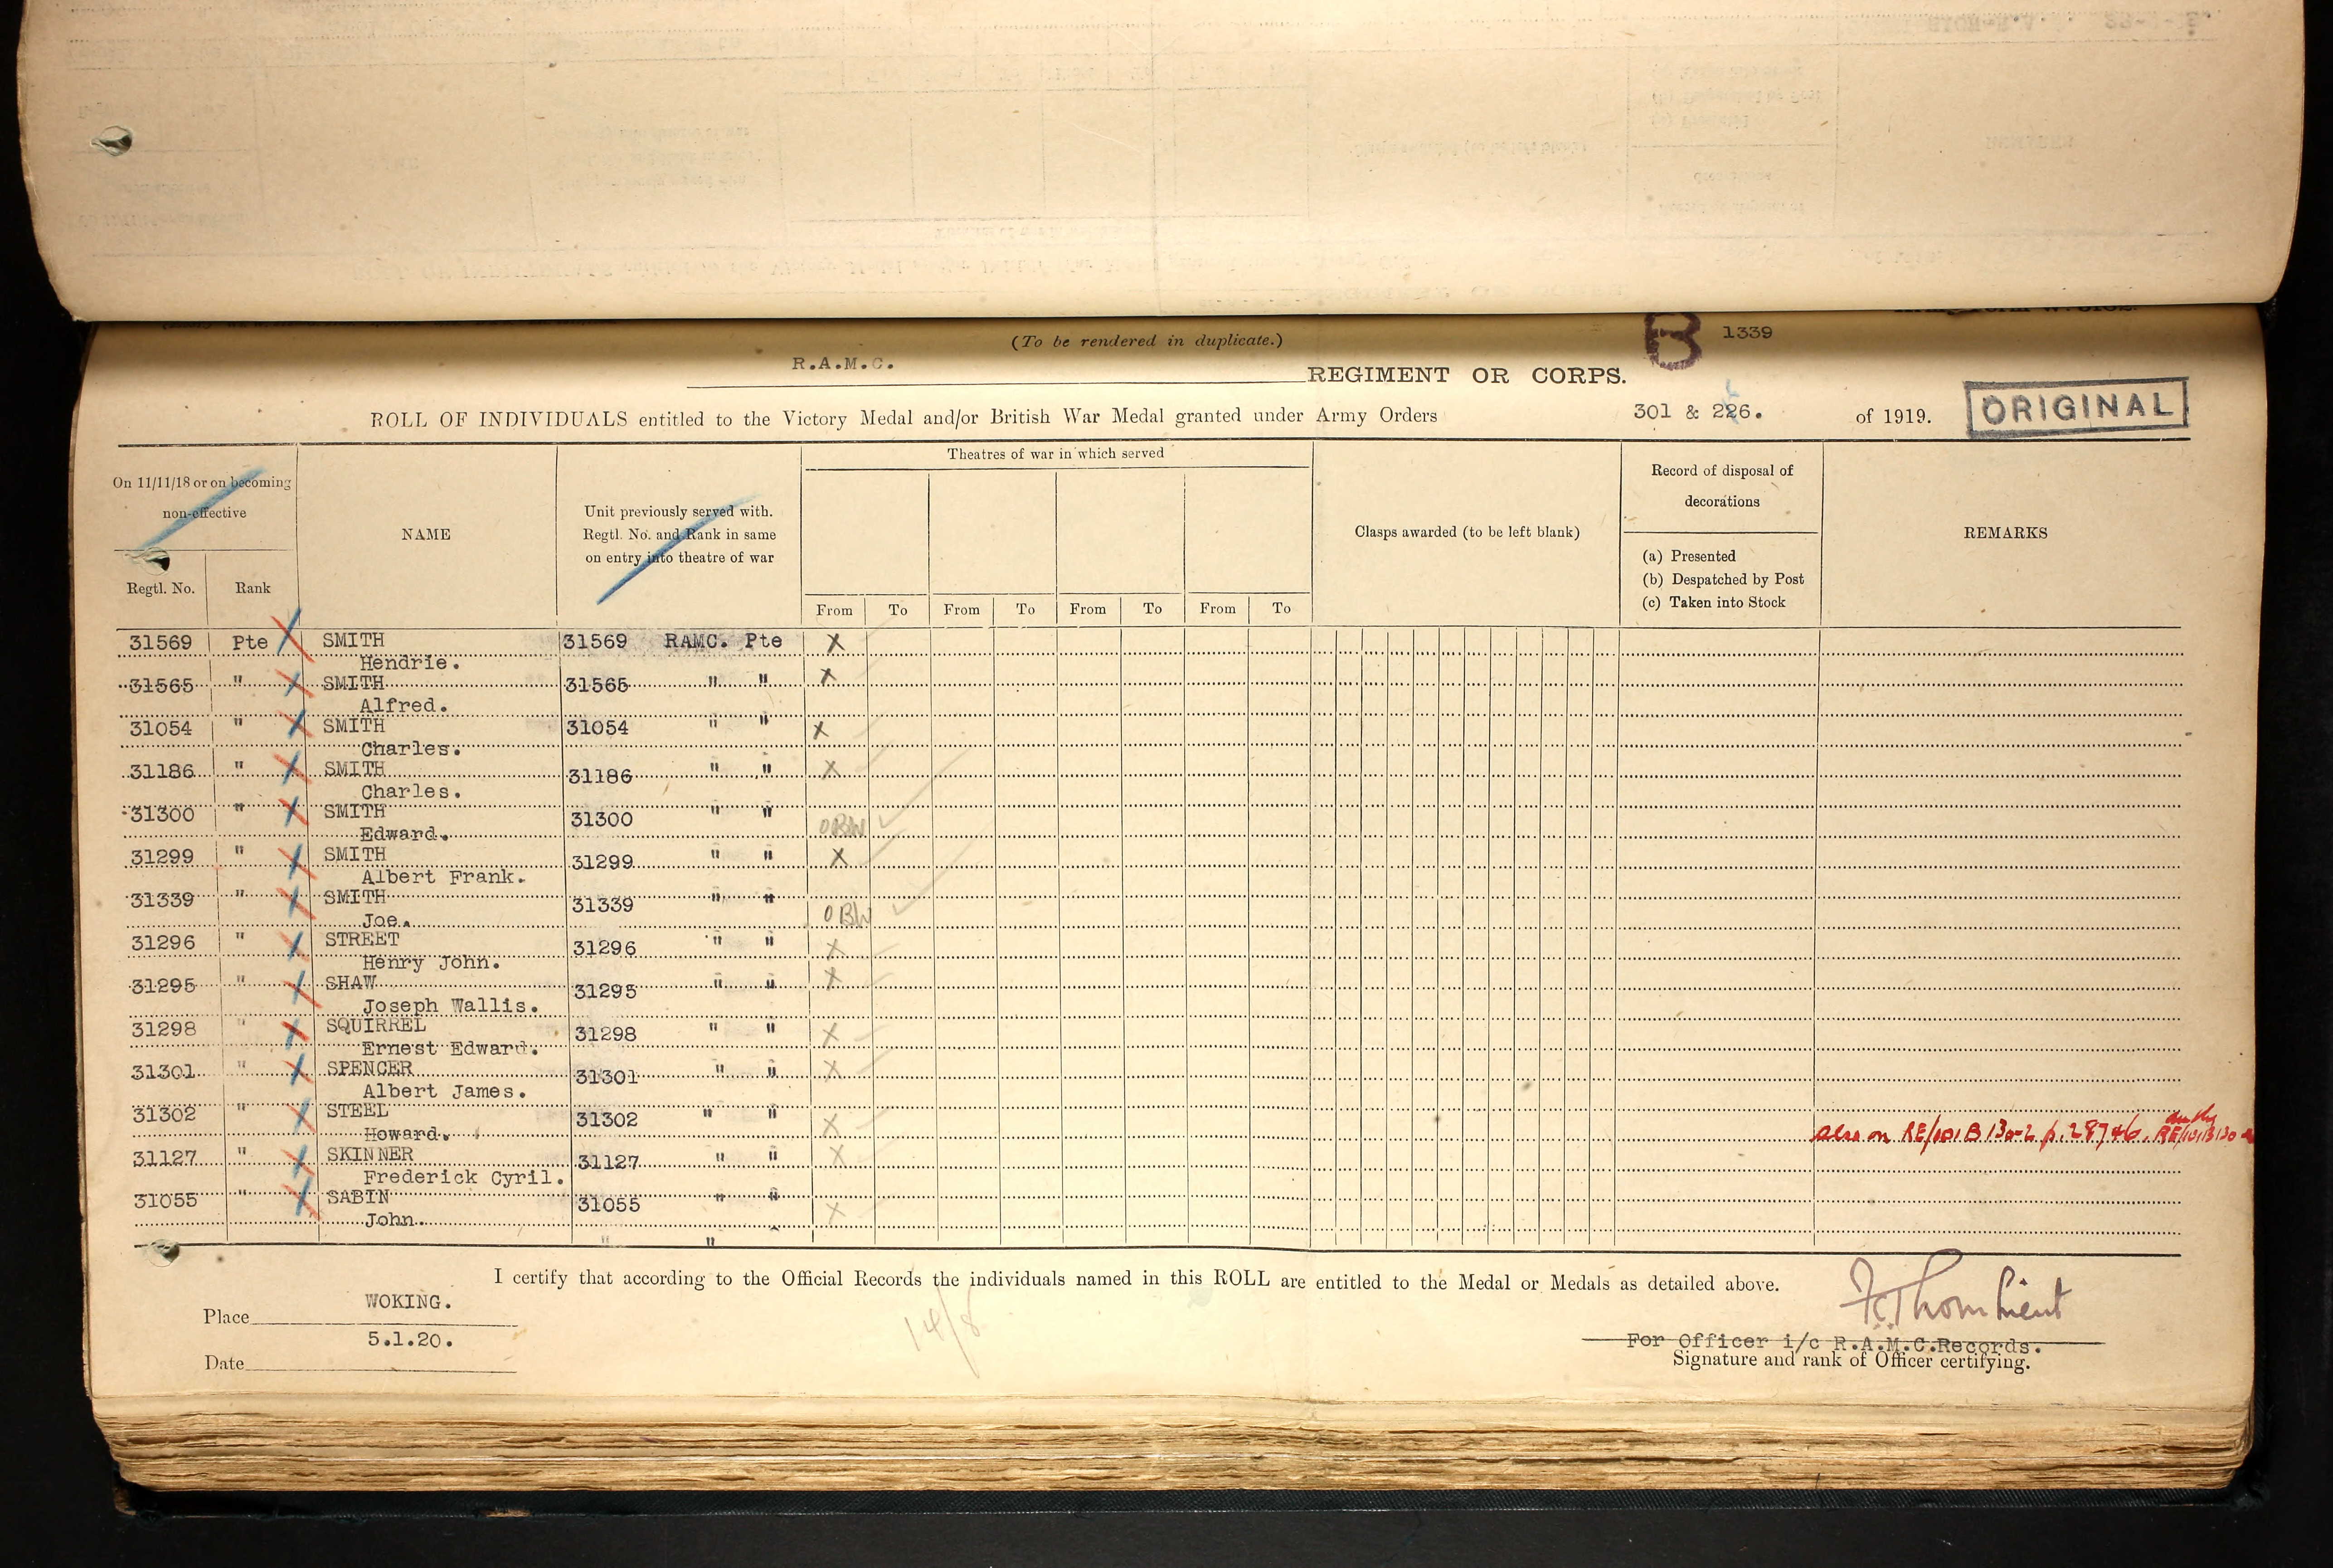 (To be rendered in duplicate.)
B 1339
R.A.M.C. REGIMENT OR CORPS.
ROLL OF INDIVIDUALS entitled to the Victory Medal and/or British War Medal granted under Army Orders 301 & 266. of 1919. ORIGINAL
On 11/11/18 or on becoming non-effective
Regtl. No. Rank
NAME
Unit previously served with.
Regtl. No. and Rank in same
on entry into theatre of war
Theatres of war in which served
From To From To From To From To
Clasps awarded (to be left blank)
Record of disposal of
decorations
(a) Presented
(b) Despatched by Post
(c) Taken into Stock
REMARKS
31569 Pte SMITH 31569 RAMC. Pte X
Hendrie.
31565 " SMITH 31565 " " X
Alfred.
31054 " SMITH 31054 " " X
Charles.
31186 " SMITH 31186 " " X
Charles.
31300 " SMITH 31300 " "
Edward. OBW
31299 " SMITH 31299 " " X
Albert Frank.
31339 " SMITH 31339 " "
Joe. OBW
31296 " STREET 31296 " " X
Henry John.
31295 " SHAW 31295 " " X
Joseph Wallis.
31298 " SQUIRREL 31298 " " X
Ernest Edward.
31301 " SPENCER 31301 " " X
Albert James.
31302 " STEEL 31302 " " X
Howard. also on RE/101 B 130-2 p. 28746.
31127 " SKINNER 31127 " " X
Frederick Cyril.
31055 " SABIN 31055 " " X
John.
" "
I certify that according to the Official Records the individuals named in this ROLL are entitled to the Medal or Medals as detailed above.
Place WOKING.
14/8
Date 5.1.20.
For Officer i/c R.A.M.C.Records.
Signature and rank of Officer certifying.